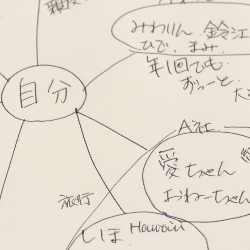 みわりん 鈴江
ひで. まみ.
年1回でも
おぅーと
自分
A社
愛ちゃん
おねーちゃん
旅行
しほ Hawaii